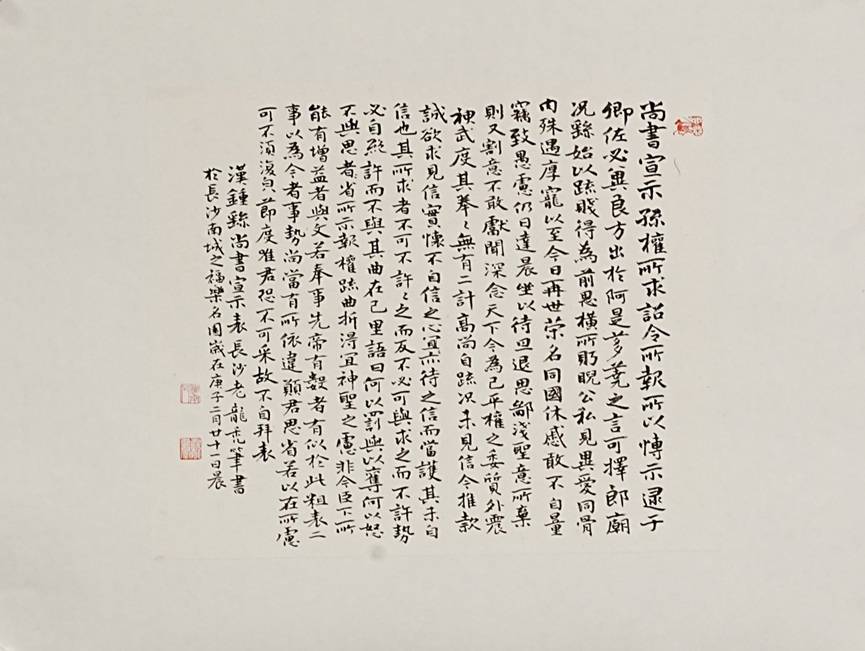 尚書宣示孫權所求詔令所報所以博示逮于
卿佐必冀良方出於阿是芻蕘之言可擇郎廟
況繇始以疏賤得為前恩橫所㒵睨公私見異愛同骨
肉殊遇厚寵以至今日再世榮名同國休慼敢不自量
竊致愚慮仍日達晨坐以待旦退思鄙淺聖意所棄
則又割意不敢獻聞深念天下今為已平權之委質外震
神武度其拳〻無有二計高尚自疏況未見信今推款
誠欲求見信實懷不自信之心宜亦待之信而當護其未自
信也其所求者不可不許〻之而反不必可與求之而不許勢
必自絕許而不與其曲在己里語曰何以罰與以奪何以怒
不與思者省所示報權疏曲折得宜神聖之慮非今臣下所
能有增益者與文若奉事先帝有數者有似於此粗表二
事以為今者事勢尚當有所依違顧君思省若以在所慮
可不須復皃節度唯君恐不可采故不自拜表
漢鍾繇尚書宣示表長沙老龍亮筆書
於長沙南城之福樂名園歲在庚子二月廿十一日晨